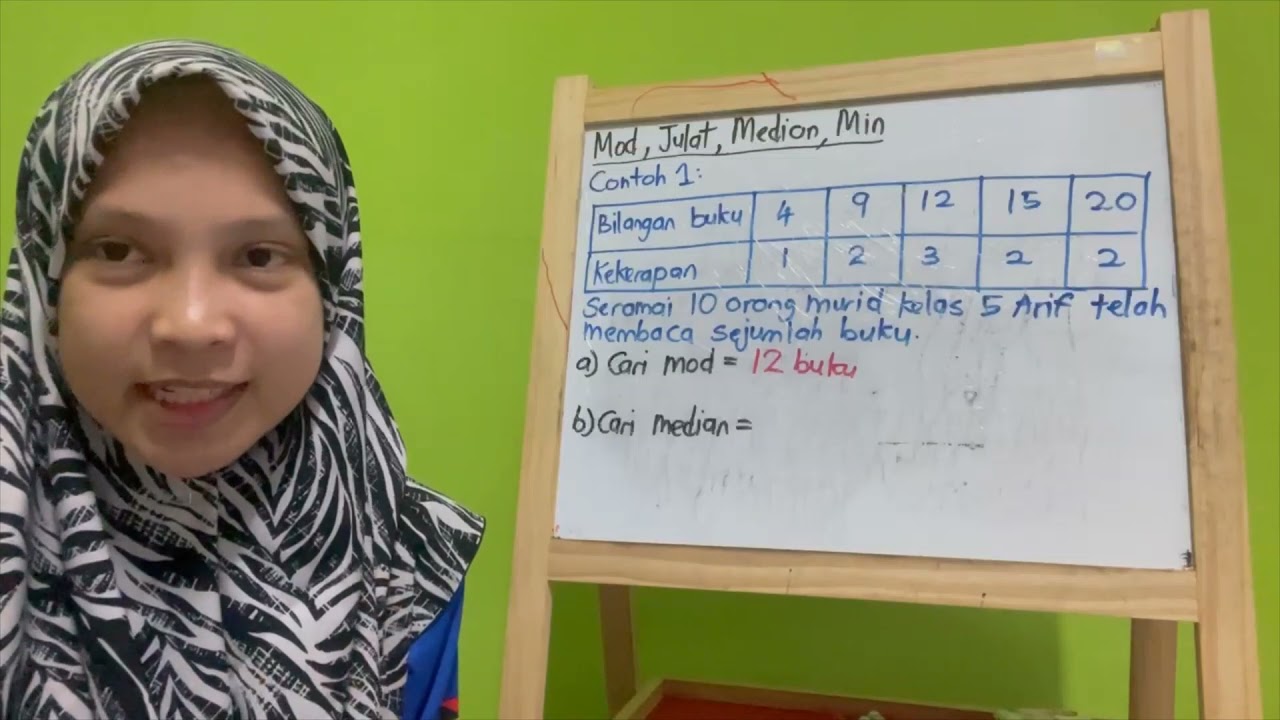 Mod, Julat, Median, Min
Contoh 1:
Bilangan buku 4 9 12 15 20
Kekerapan 1 2 3 2 2
Seramai 10 orang murid kelas 5 Arif telah
membaca sejumlah buku.
a) Cari mod = 12 buku
b) Cari median =